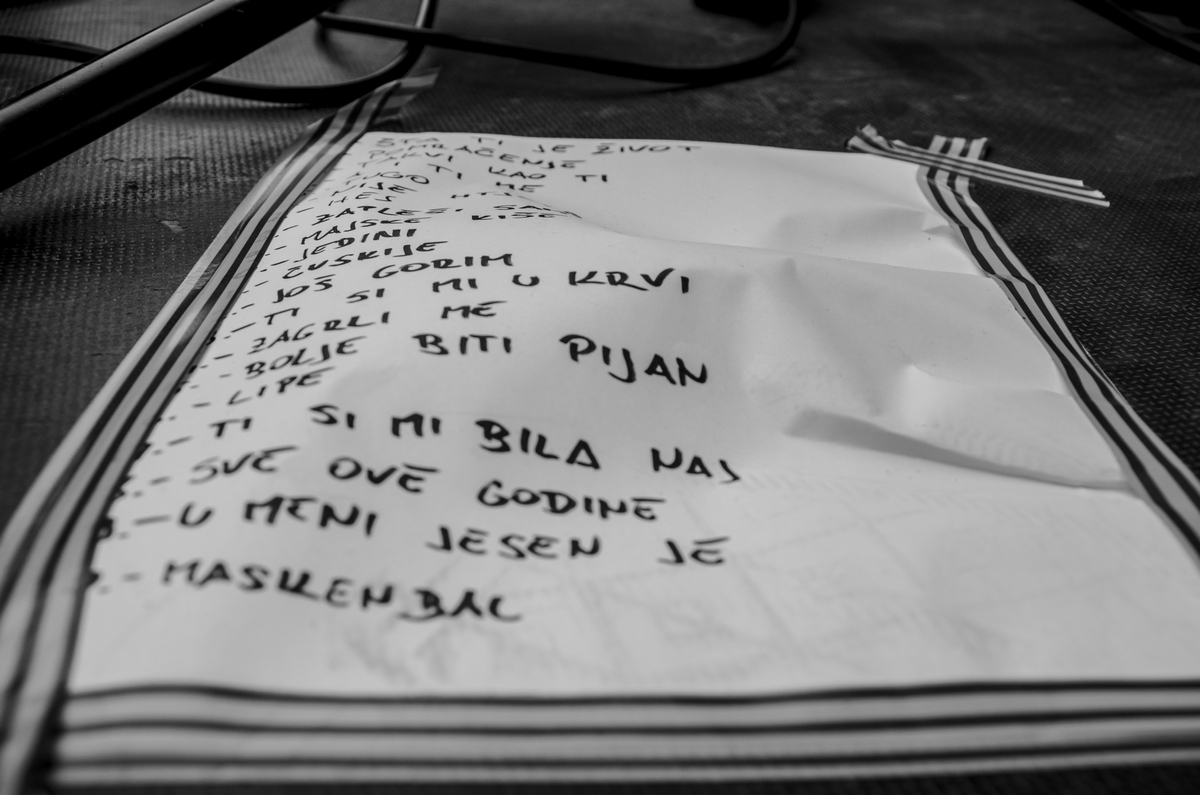 ŠTA TI JE ŽIVOT
POMRAČENJE
TAKVI KAO TI
ME
ZAPLEŠI SAM
MAJSKE KIŠE
- JEDINI
- ZUSKIJE
- JOŠ GORIM
- TI SI MI U KRVI
- ZAGRLI ME
- BOLJE BITI PIJAN
- LIPE
- TI SI MI BILA NAJ
- SVE OVE GODINE
- U MENI JESEN JE
- MASKENBAL